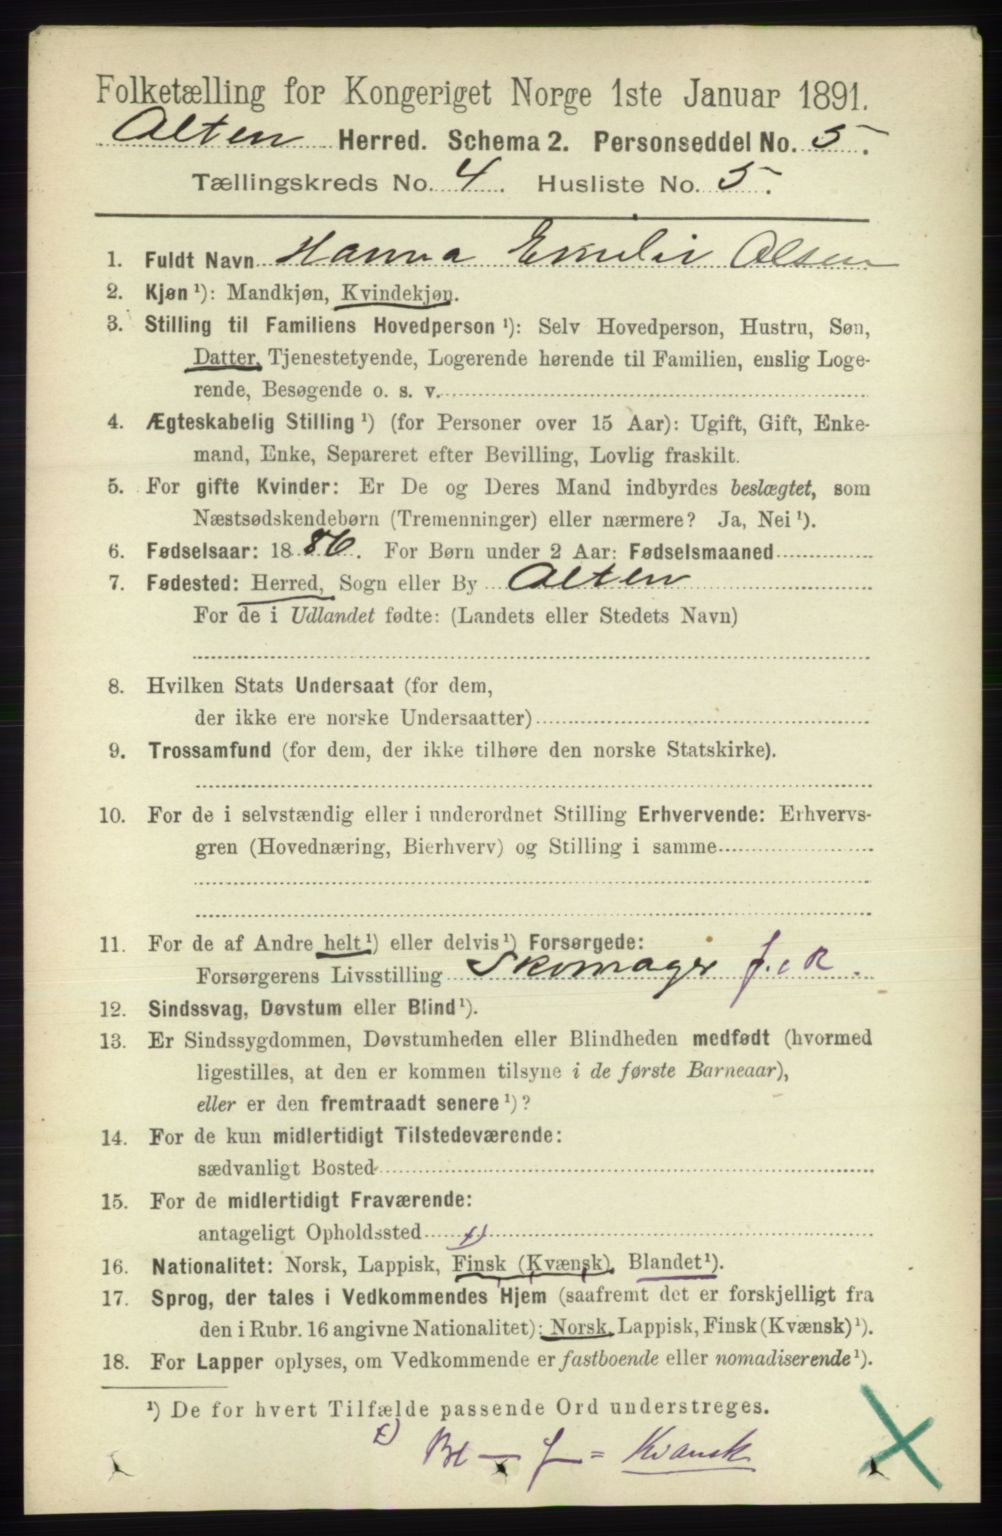 Folketælling for Kongeriget Norge 1ste Januar 1891.
Alten Herred. Schema 2. Personseddel No. 5.
Tællingskreds No. 4. Husliste No. 5.
1. Fuldt Navn Hanna Emilie Olsen
2. Kjøn ¹): Mandkjøn, Kvindekjøn.
3. Stilling til Familiens Hovedperson ¹): Selv Hovedperson, Hustru, Søn,
Datter, Tjenestetyende, Logerende hørende til Familien, enslig Loge-
rende, Besøgende o. s. v.
4. Ægteskabelig Stilling ¹) (for Personer over 15 Aar): Ugift, Gift, Enke-
mand, Enke, Separeret efter Bevilling, Lovlig fraskilt.
5. For gifte Kvinder: Er De og Deres Mand indbyrdes beslægtet, som
Næstsødskendebørn (Tremenninger) eller nærmere? Ja, Nei ¹).
6. Fødselsaar: 1886. For Børn under 2 Aar: Fødselsmaaned
7. Fødested: Herred, Sogn eller By Alten
For de i Udlandet fødte: (Landets eller Stedets Navn)
8. Hvilken Stats Undersaat (for dem,
der ikke ere norske Undersaatter)
9. Trossamfund (for dem, der ikke tilhøre den norske Statskirke).
10. For de i selvstændig eller i underordnet Stilling Erhvervende: Erhvervs-
gren (Hovednæring, Bierhverv) og Stilling i samme
11. For de af Andre helt ¹) eller delvis ¹) Forsørgede:
Forsørgerens Livsstilling Skomager f.e R.
12. Sindssvag, Døvstum eller Blind ¹).
13. Er Sindssygdommen, Døvstumheden eller Blindheden medfødt (hvormed
ligestilles, at den er kommen tilsyne i de første Barneaar),
eller er den fremtraadt senere ¹)?
14. For de kun midlertidigt Tilstedeværende:
sædvanligt Bosted
15. For de midlertidigt Fraværende:
antageligt Opholdssted
16. Nationalitet: Norsk, Lappisk, Finsk (Kvænsk), Blandet ¹).
17. Sprog, der tales i Vedkommendes Hjem (saafremt det er forskjelligt fra
den i Rubr. 16 angivne Nationalitet): Norsk, Lappisk, Finsk (Kvænsk) ¹).
18. For Lapper oplyses, om Vedkommende er fastboende eller nomadiserende ¹).
¹) De for hvert Tilfælde passende Ord understreges.
Bl — f — = Kvænsk